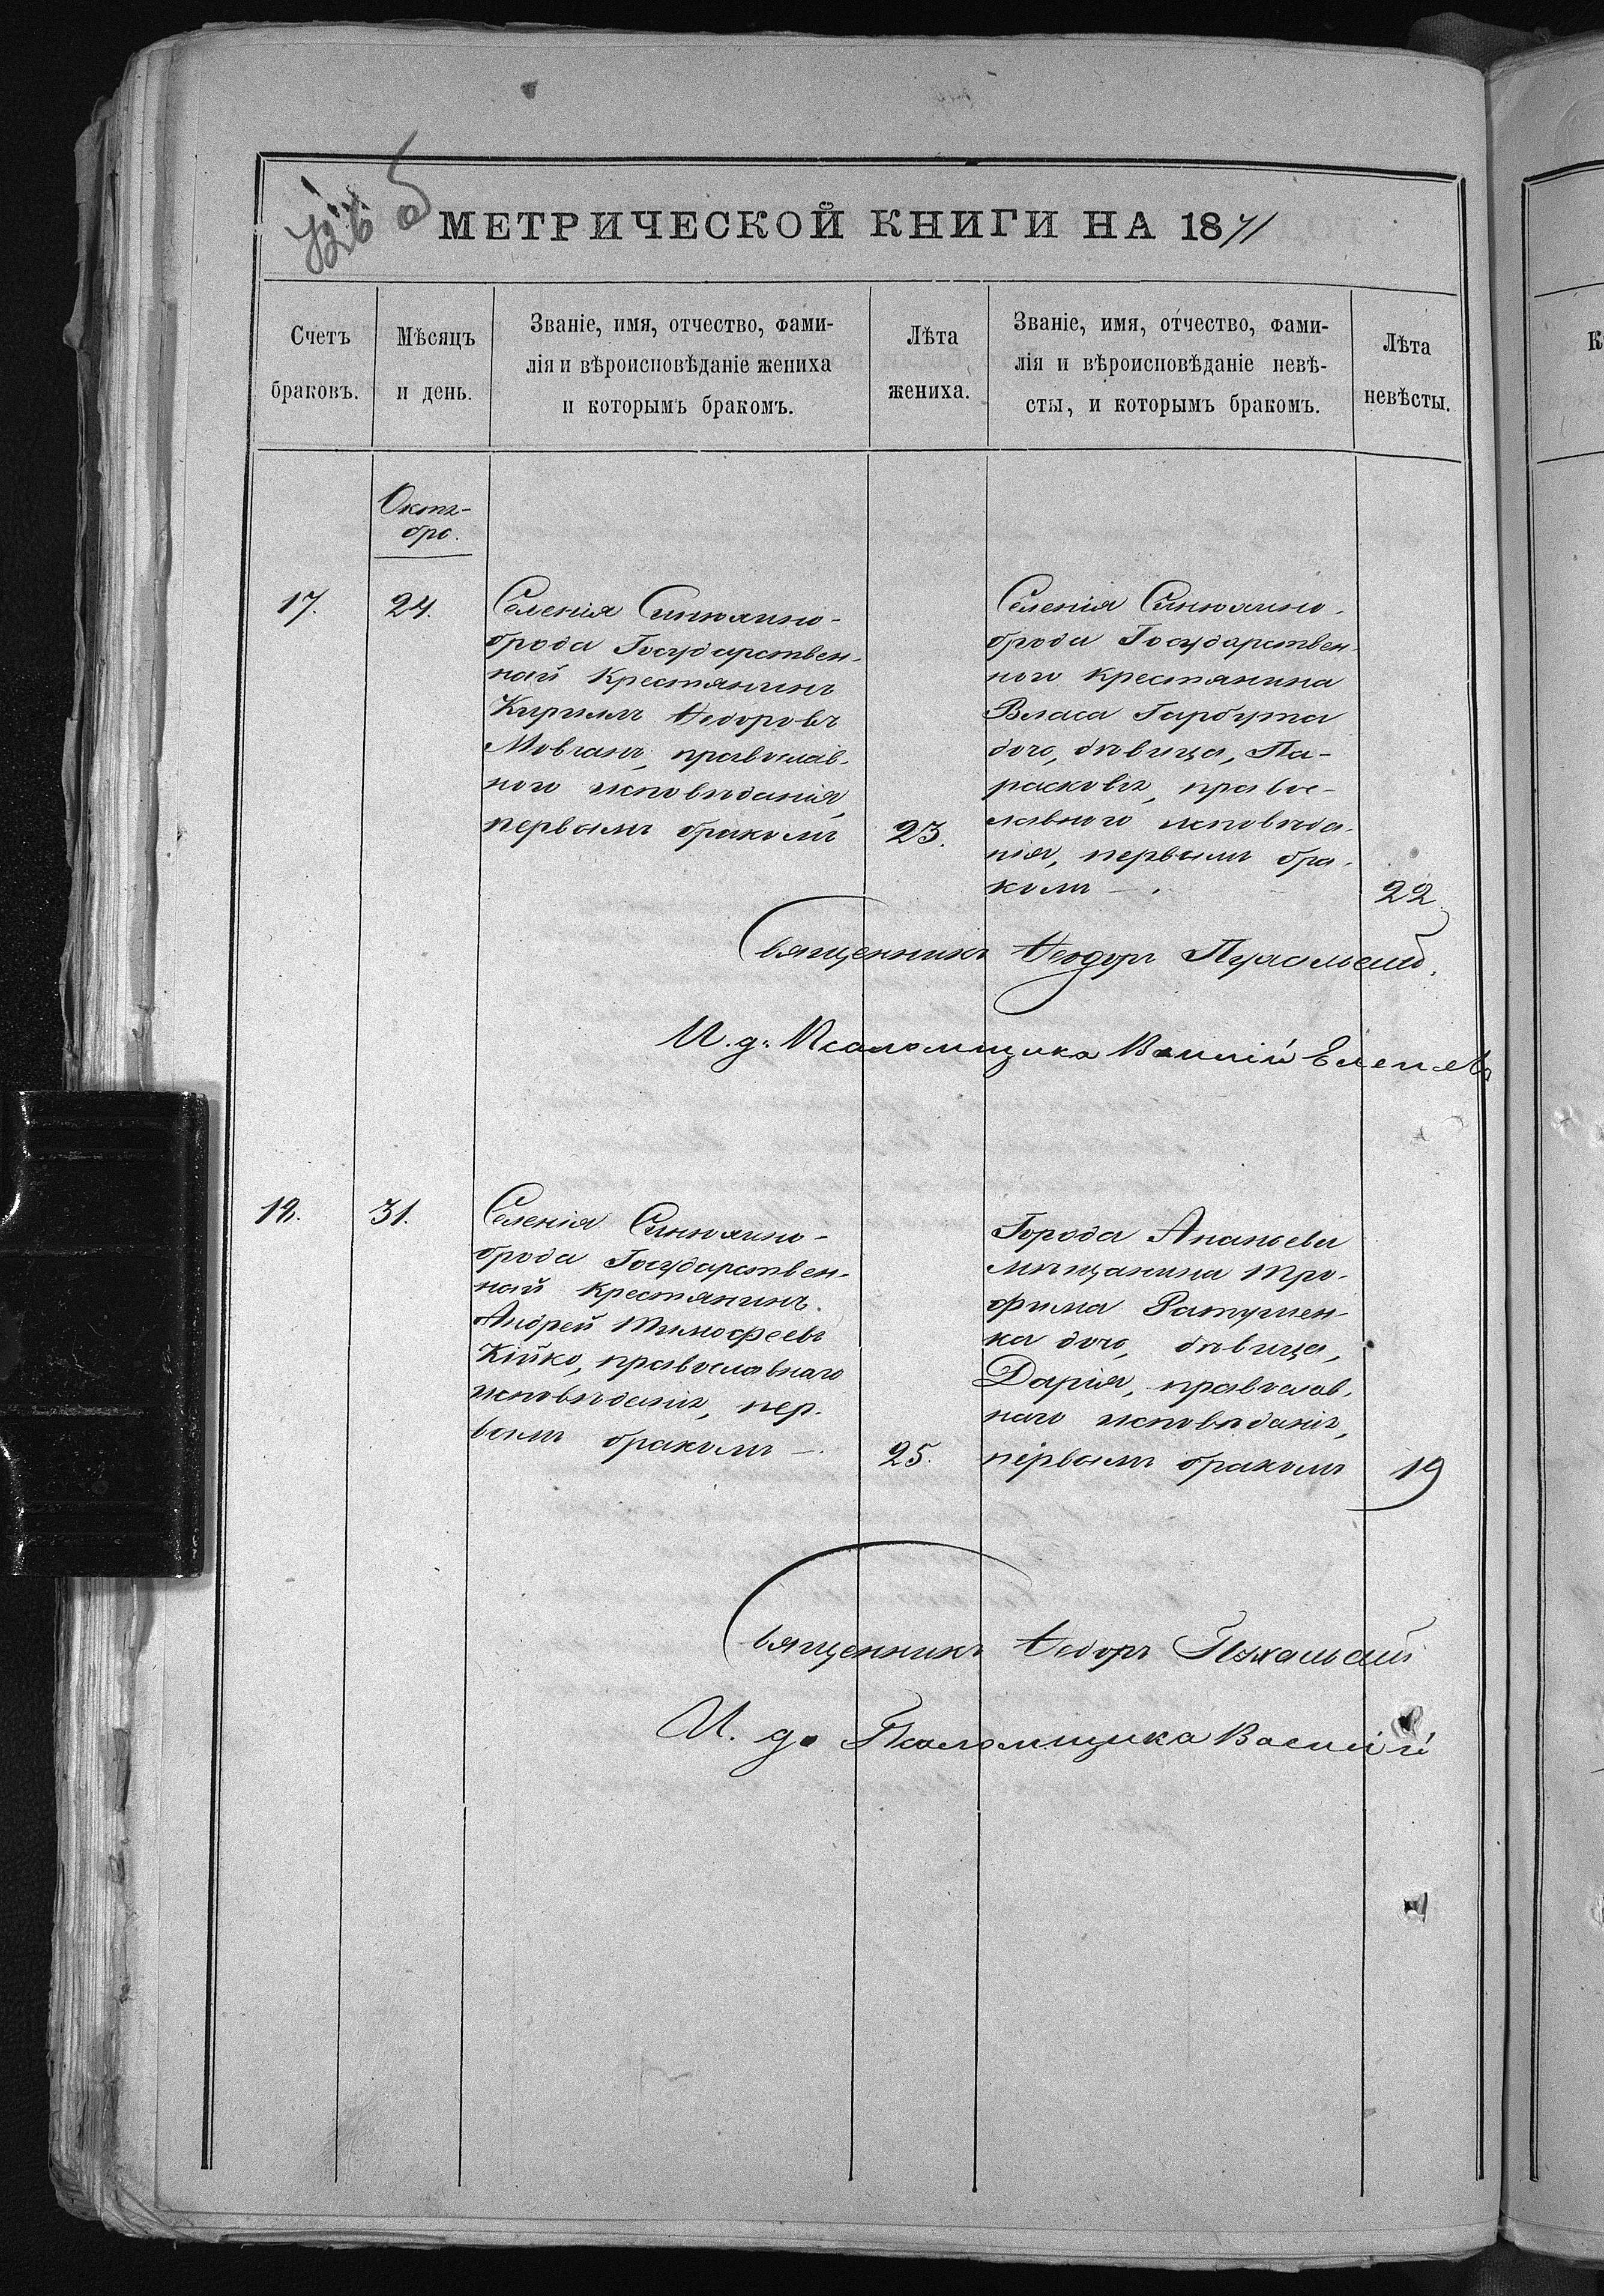 МЕТРИЧЕСКОЙ КНИГИ НА 1871
Счетъ браковъ.
Мѣсяцъ и день.
Званіе, имя, отчество, фами-
лія и вѣроисповѣданіе жениха
и которымъ бракомъ.
Лѣта жениха.
Званіе, имя, отчество, фами-
лія и вѣроисповѣданіе невѣ-
сты, и которымъ бракомъ.
Лѣта невѣсты.
Октя-
бра.
17.
24.
Селенія Синюхино-
брода Государствен-
ный крестянинъ
Кирилъ Ѳеодоровъ
Мовчанъ, православ-
ного исповѣданія,
первымъ бракомъ
23.
Селенія Синюхино-
брода Государствен-
ного крестянина
Власа Гарбуза
дочь, дѣвица, Па-
расковія, право-
славного исповѣда-
нія, первымъ бра-
комъ —.
22
Священникъ Ѳеодоръ
И. д. Псаломщика Василій
18.
31.
Селенія Синюхино-
брода Государствен-
ный крестянинъ
Андрей Тимофеевъ
Кійко, православнаго
исповѣданія, пер-
вымъ бракомъ —.
25.
Города Ананьева
мѣщанина Тро-
фима Ратушен-
ка дочь, дѣвица,
Дарія, православ-
наго исповѣданія,
первымъ бракомъ
19
Священникъ Ѳеодоръ
И. д. Псаломщика Василій